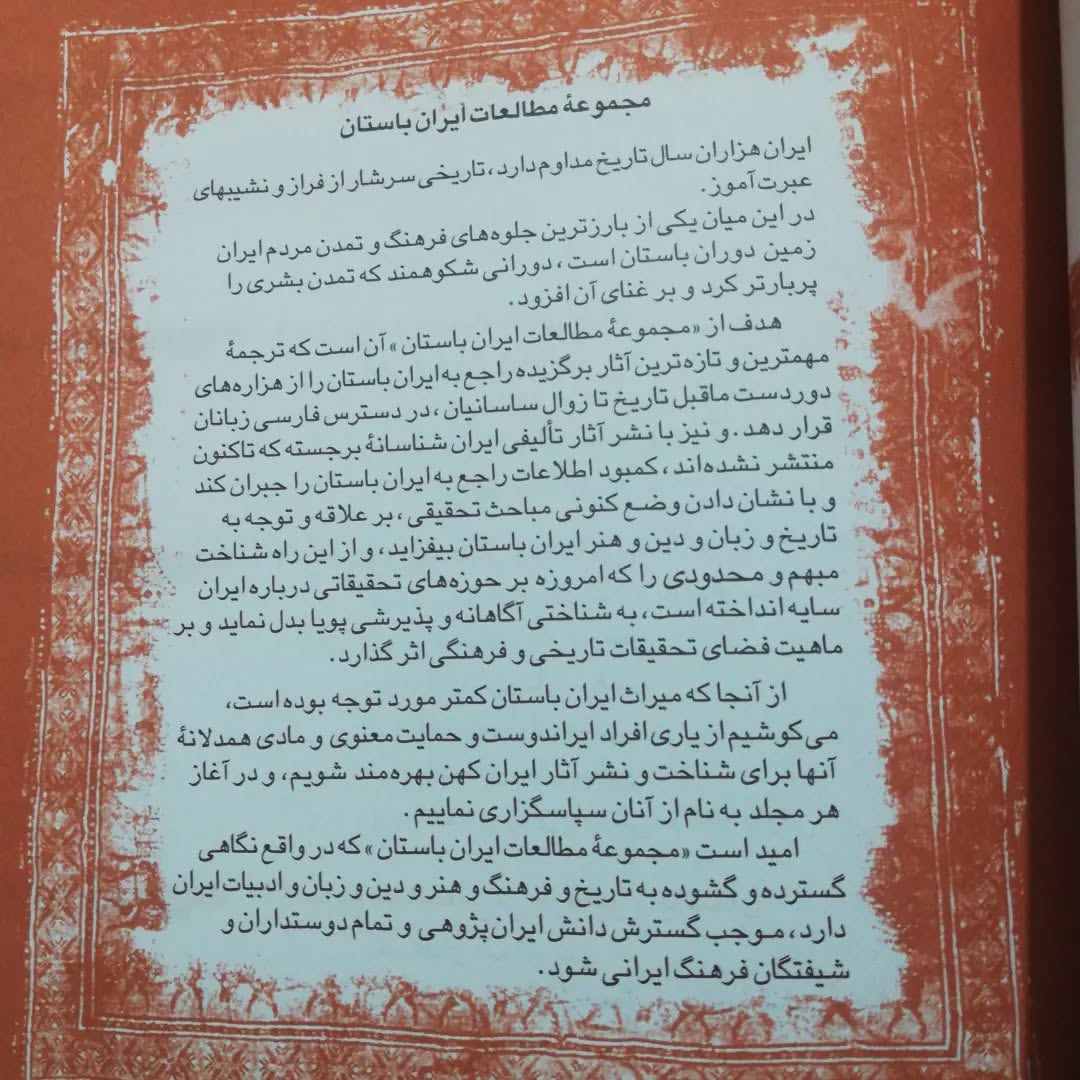 مجموعهٔ مطالعات ایران باستان
ایران هزاران سال تاریخ مداوم دارد، تاریخی سرشار از فراز و نشیبهای
عبرت‌آموز.
در این میان یکی از بارزترین جلوه‌های فرهنگ و تمدن مردم ایران
زمین دوران باستان است، دورانی شکوهمند که تمدن بشری را
پربارتر کرد و بر غنای آن افزود.
هدف از «مجموعهٔ مطالعات ایران باستان» آن است که ترجمهٔ
مهمترین و تازه‌ترین آثار برگزیده راجع به ایران باستان را از هزاره‌های
دوردست ماقبل تاریخ تا زوال ساسانیان، در دسترس فارسی زبانان
قرار دهد. و نیز با نشر آثار تألیفی ایران شناسانهٔ برجسته که تاکنون
منتشر نشده‌اند، کمبود اطلاعات راجع به ایران باستان را جبران کند
و با نشان دادن وضع کنونی مباحث تحقیقی، بر علاقه و توجه به
تاریخ و زبان و دین و هنر ایران باستان بیفزاید، و از این راه شناخت
مبهم و محدودی را که امروزه بر حوزه‌های تحقیقاتی درباره ایران
سایه انداخته است، به شناختی آگاهانه و پذیرشی پویا بدل نماید و بر
ماهیت فضای تحقیقات تاریخی و فرهنگی اثر گذارد.
از آنجا که میراث ایران باستان کمتر مورد توجه بوده است،
می‌کوشیم از یاری افراد ایراندوست و حمایت معنوی و مادی همدلانهٔ
آنها برای شناخت و نشر آثار ایران کهن بهره‌مند شویم، و در آغاز
هر مجلد به نام از آنان سپاسگزاری نماییم.
امید است «مجموعهٔ مطالعات ایران باستان» که در واقع نگاهی
گسترده و گشوده به تاریخ و فرهنگ و هنر و دین و زبان و ادبیات ایران
دارد، موجب گسترش دانش ایران‌پژوهی و تمام دوستداران و
شیفتگان فرهنگ ایرانی شود.